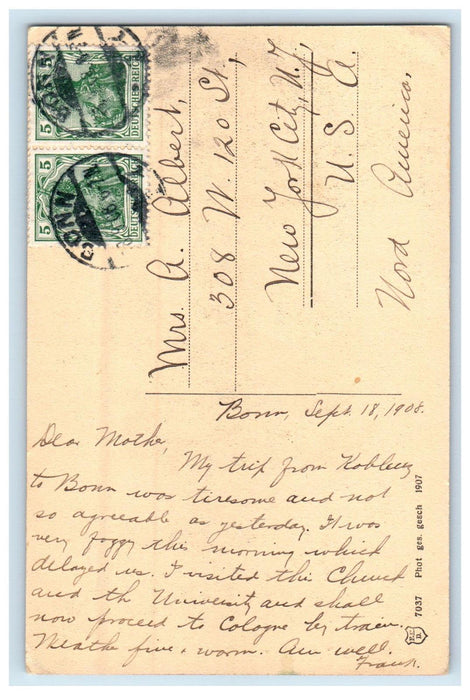 5
DEUTSCHES REICH
BONN
5
DEUTSCHES REICH
BONN
Mrs. A. Albert,
308 W. 120 St,
New York City, N.Y,
U. S. A.
Nord America,
Bonn, Sept. 18, 1908.
Dear Mother,
My trip from Koblenz
to Bonn was tiresome and not
so agreeable as yesterday. It was
very foggy this morning which
delayed us. I visited this Church
and th University and shall
now proceed to Cologne by train.
Weather fine & warm. Am well.
Frank.
7037 Phot ges. gesch 1907